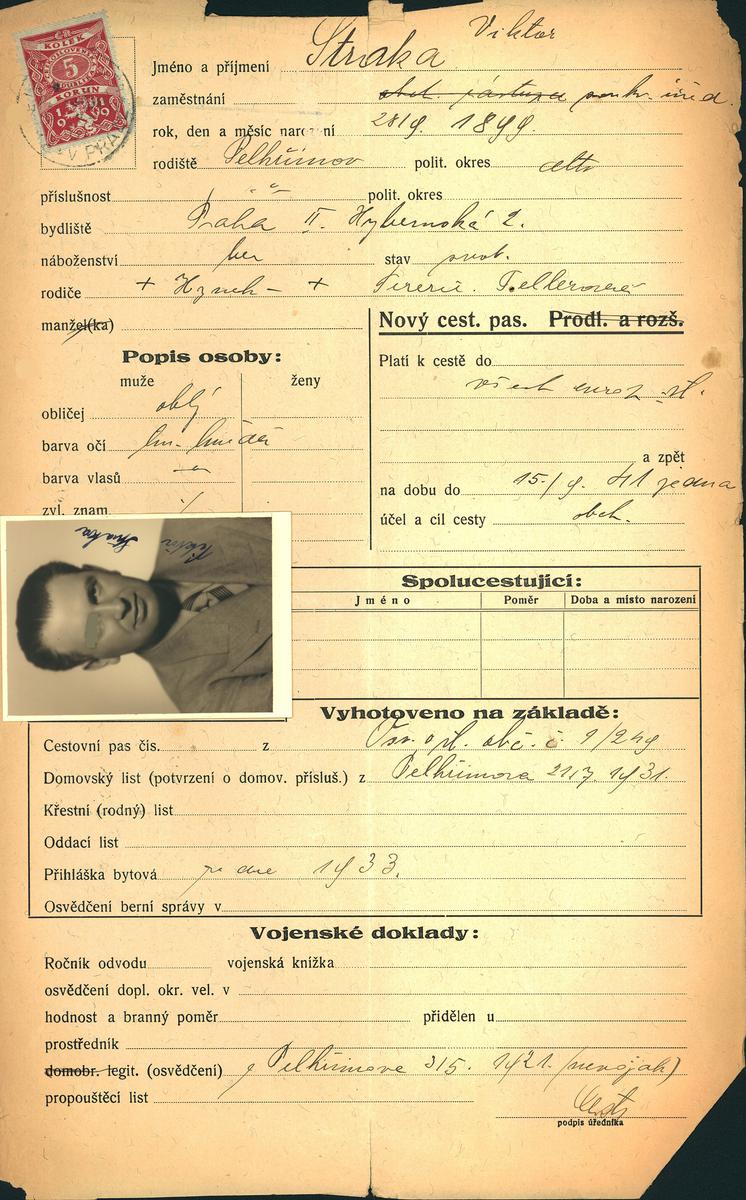 KOLEK
5
KORUN
Viktor
Jméno a příjmení Straka
zaměstnání soukr. úřed.
rok, den a měsíc narození 28/9. 1899.
rodiště Pelhřimov polit. okres dtto
příslušnost polit. okres
bydliště Praha II. Hybernská 2.
náboženství bez stav svob.
rodiče + Hynek - +
manžel(ka)
Nový cest. pas. Prodl. a rozš.
Popis osoby:
muže ženy
obličej oblý
barva očí
barva vlasů
zvl. znam.
Platí k cestě do
všech
a zpět
na dobu do 15./9. 41 jedna
účel a cíl cesty obch.
Viktor
Straka
Spolucestující:
Jméno Poměr Doba a místo narození
Vyhotoveno na základě:
Cestovní pas čís. z Osv. o st. obč. č. 1/249
Domovský list (potvrzení o domov. přísluš.) z Pelhřimova 21/7. 1931.
Křestní (rodný) list
Oddací list
Přihláška bytová ze dne 1933.
Osvědčení berní správy v
Vojenské doklady:
Ročník odvodu vojenská knížka
osvědčení dopl. okr. vel. v
hodnost a branný poměr přidělen u
prostředník
domobr. legit. (osvědčení) z Pelhřimova 31/5. 1921. (nevoják)
propouštěcí list
podpis úředníka